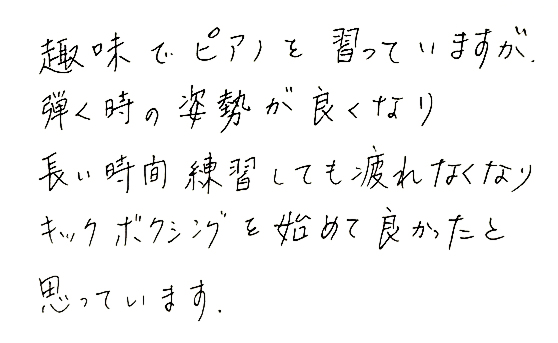 趣味でピアノを習っていますが、
弾く時の姿勢が良くなり
長い時間練習しても疲れなくなり
キックボクシングを始めて良かったと
思っています.